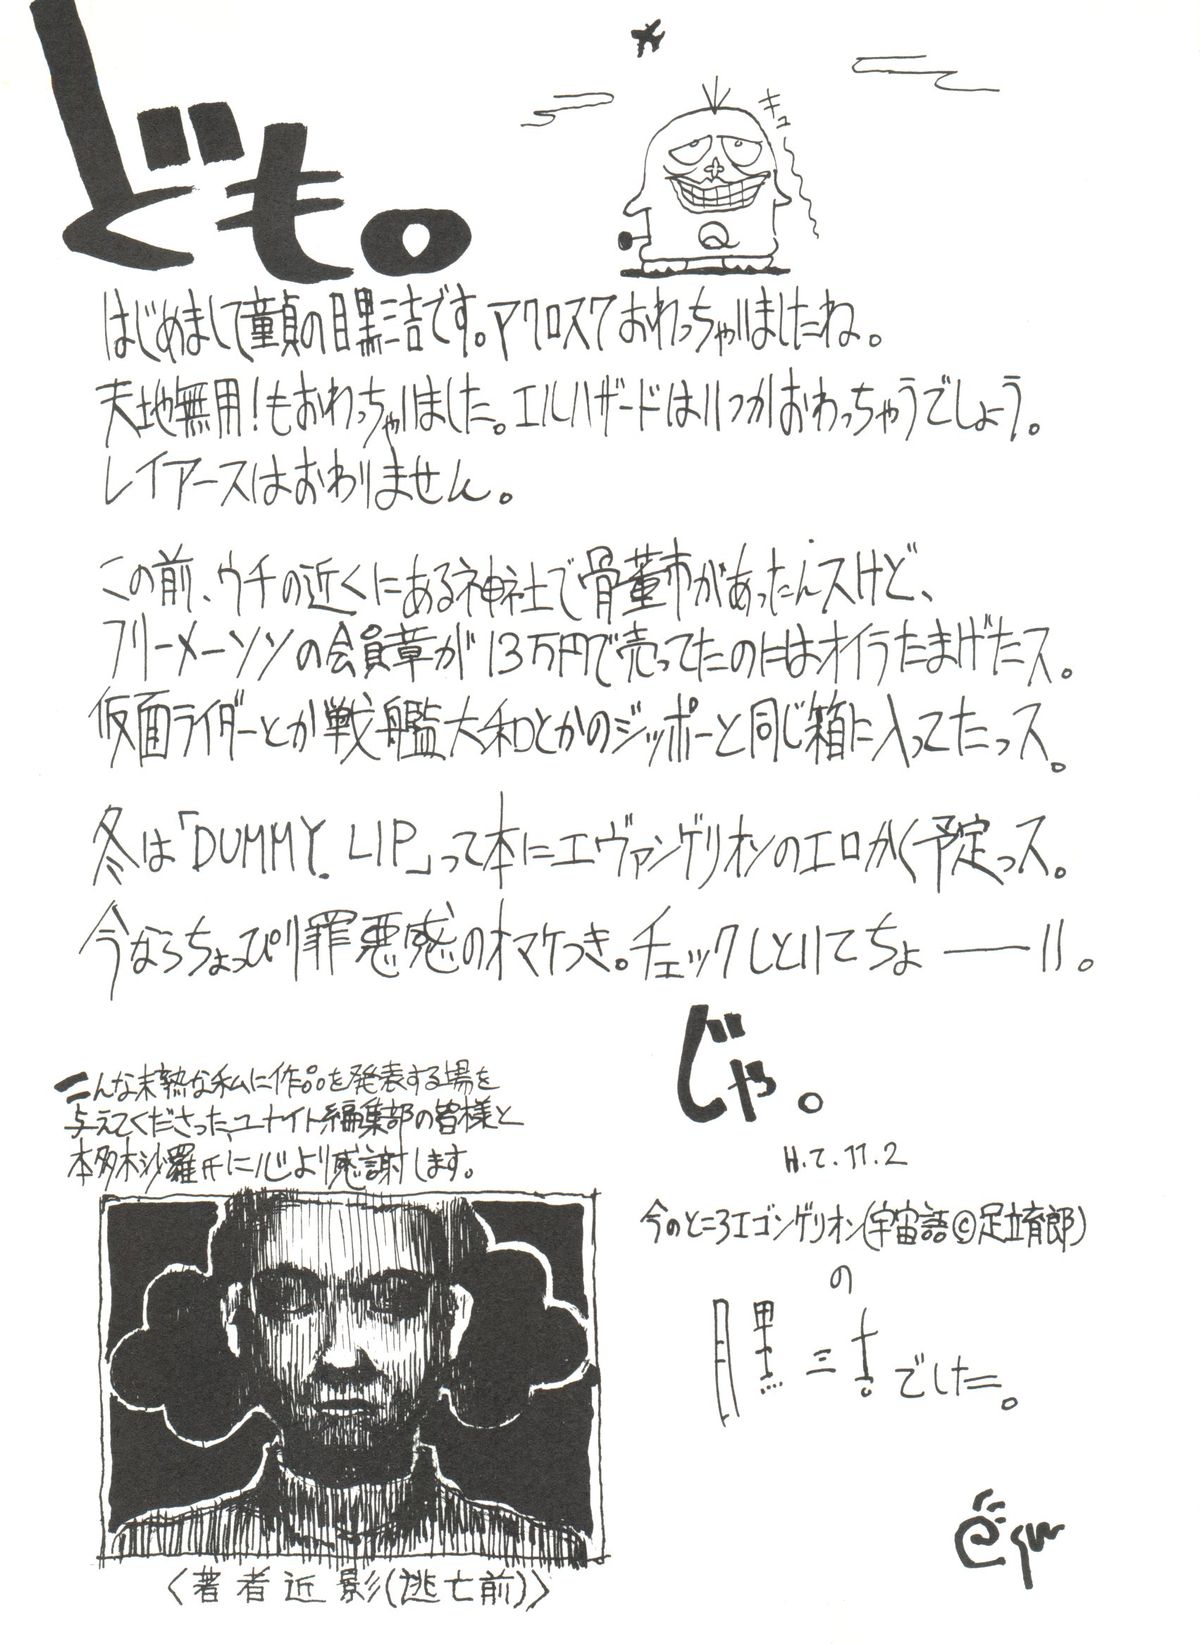 ども。
キュー
Q
はじめまして童貞の目黒三吉です。アクロスクおわっちゃいましたね。
天地無用!もおわっちゃいました。エルハザードはいつかおわっちゃうでしょう。
レイアースはおわりません。
この前、ウチの近くにある神社で骨董市があったんスけど、
フリーメーソンの会員章が13万円で売ってたのにはオイラたまげたス。
仮面ライダーとか戦艦大和とかのジッポーと同じ箱に入ってたっス。
冬は「DUMMY. LIP」って本にエヴァンゲリオンのエロかく予定っス。
今ならちょっぴり罪悪感のオマケつき。チェックしといてちょーーい。
じゃ。
H.7.11.2
こんな未熟な私に作品を発表する場を
与えてくださった、ユナイト編集部の皆様と
本多木沙羅氏に心より感謝します。
今のところエゴンゲリオン(宇宙語©足立育郎)
の
目黒三吉でした。
〈著者近影(逃亡前)〉